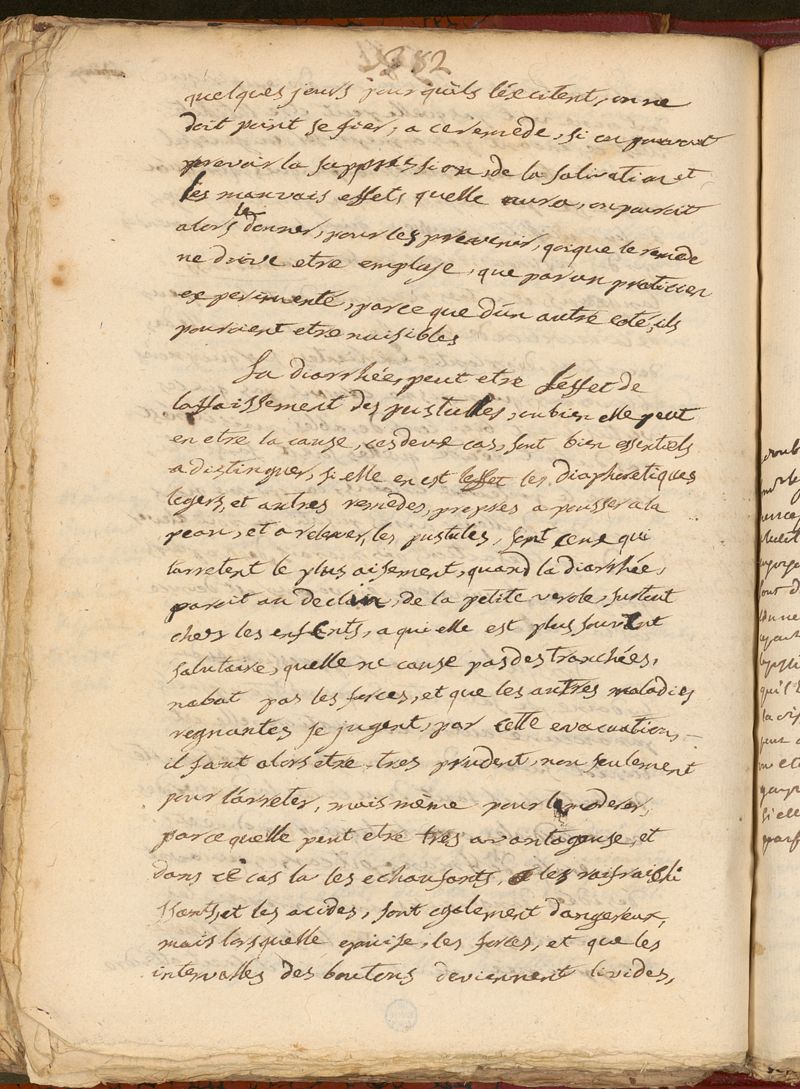 382
quelques jours pour quils lexcitent, on ne
doit point se fier, a ce remede, si on pouvoit
prevoir la suppression, de la salivation et
les mauvais effets quelle aura, on pouroit
alors le donner, pour les prevenir, qoique le remede
ne doive etre emploje, que par un praticien
experimenté, parce que d'un autre coté, ils
pouroient etre nuisibles
La diarrhée, peut etre l'effet de
laffaissement des pustulles, ou bien elle peut
en etre la cause, ces deux cas, sont bien essentiels
a distinguer, si elle en est leffet les diaphoretiques
legers, et autres remedes, propres a pousser a la
peau, et a relever, les pustules, sont ceux qui
larretent le plus aisement, quand la diarrhée,
paroit au declain, de la petite verole, surtout
chez les enfents, a qui elle est plus souvent
salutaire, quelle ne cause pas des tranchées,
nabat pas les forces, et que les autres maladies
regnantes se jugent, par cette evacuation,
il faut alors etre tres prudent, non seulement
pour larreter, mais même pour la moderer,
parce quelle peut etre tres avantageuse, et
dans ce cas la les echaufants, les rafraichi
ssants, et les acides, sont egalement dangereux,
mais lorsquelle epuise, les forces, et que les
intervalles des boutons deviennent livides,